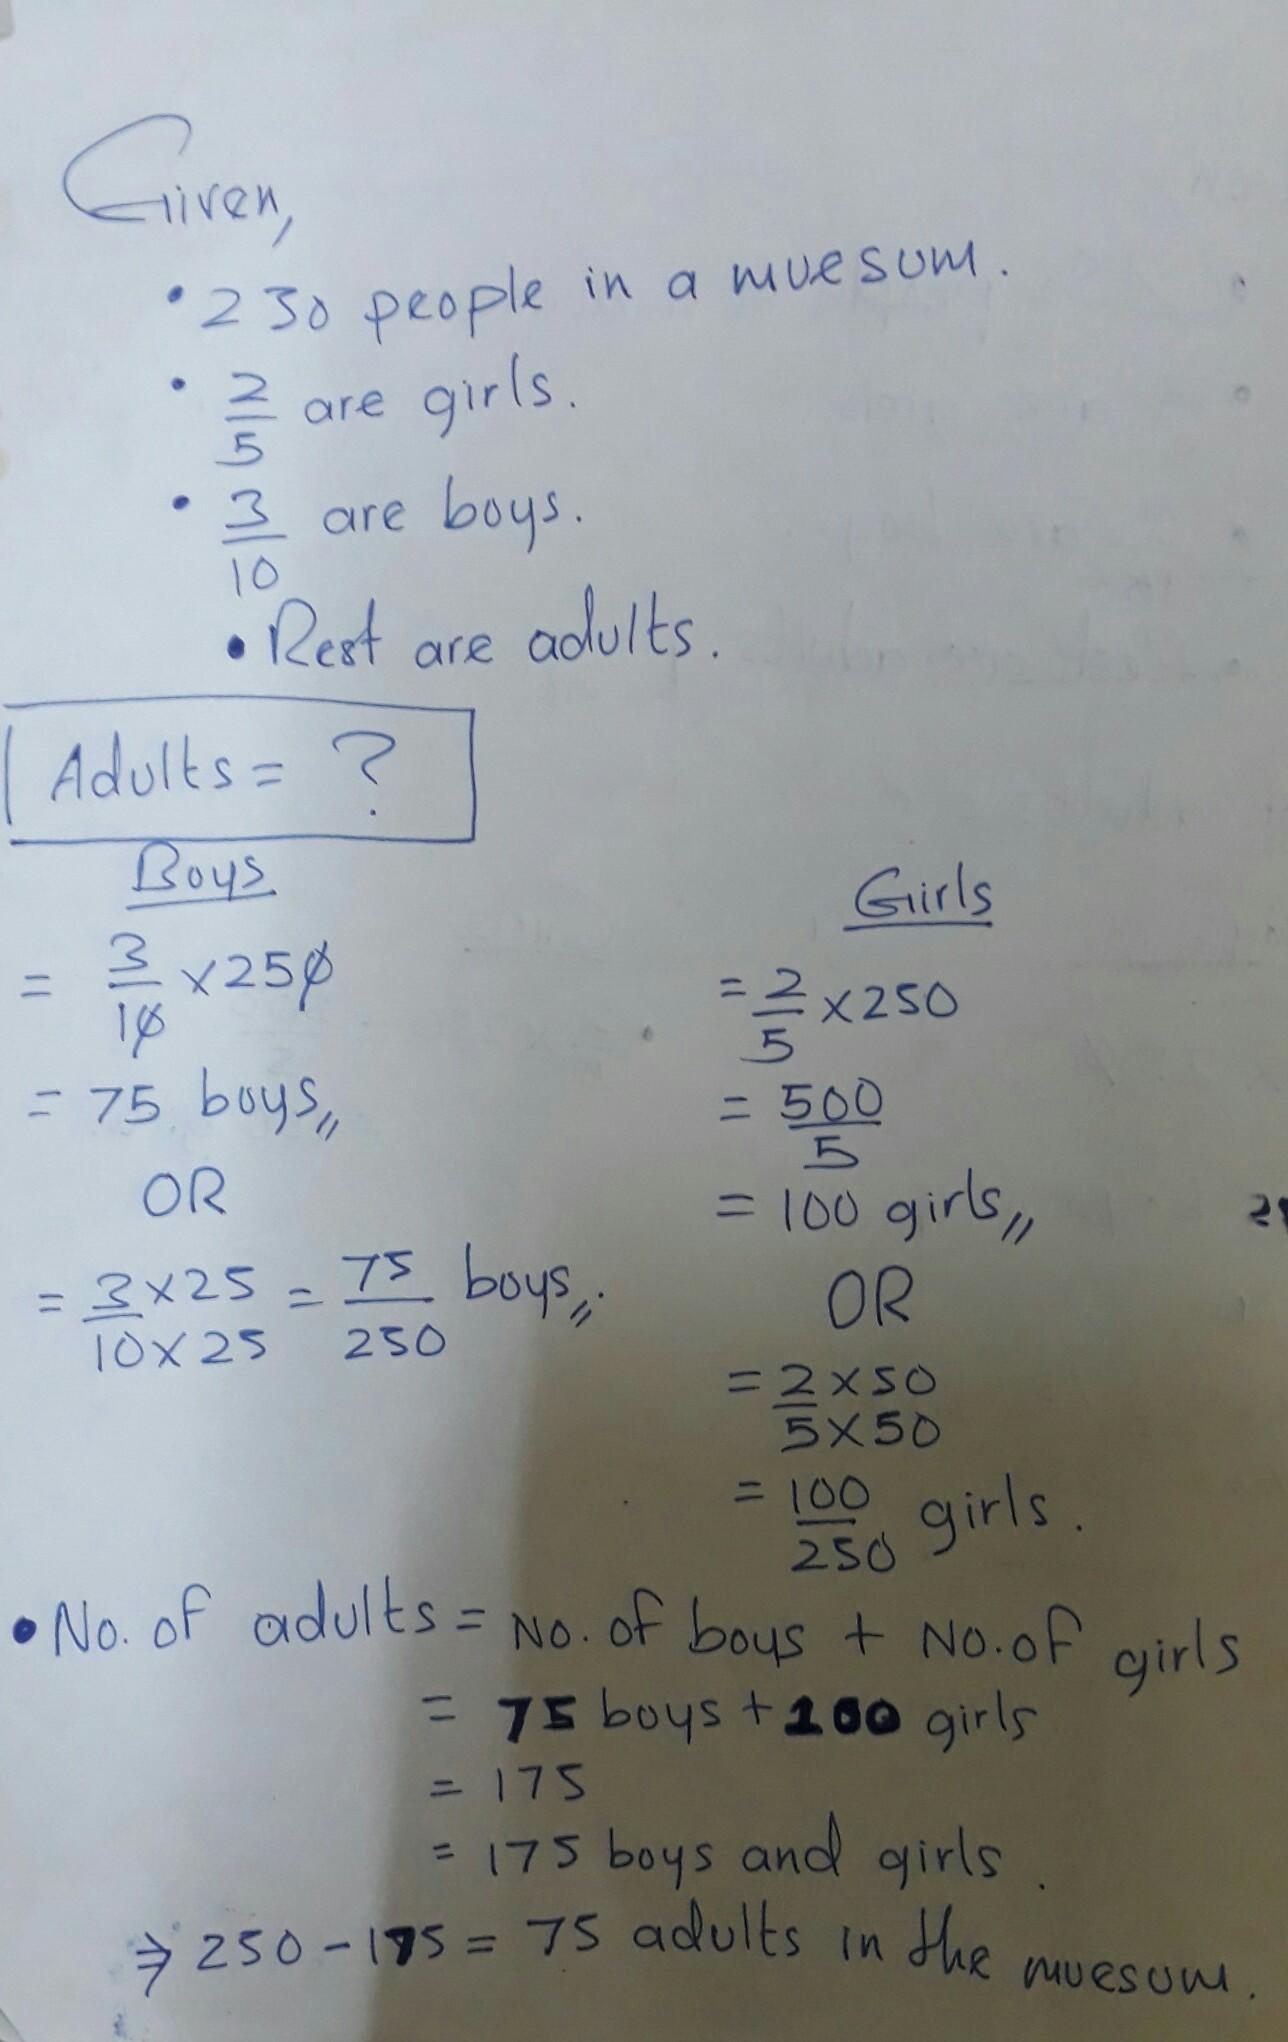 Given,
• 230 people in a muesum.
• 2/5 are girls.
• 3/10 are boys.
• Rest are adults.
Adults = ?
Boys
= 3/10 x 250
= 75 boys,,
OR
= 3x25/10x25 = 75/250 boys,,.
Girls
= 2/5 x 250
= 500/5
= 100 girls,,
OR
= 2x50/5x50
= 100/250 girls.
• No. of adults = No. of boys + No. of girls
= 75 boys + 100 girls
= 175
= 175 boys and girls.
⇒ 250 - 175 = 75 adults in the muesum.